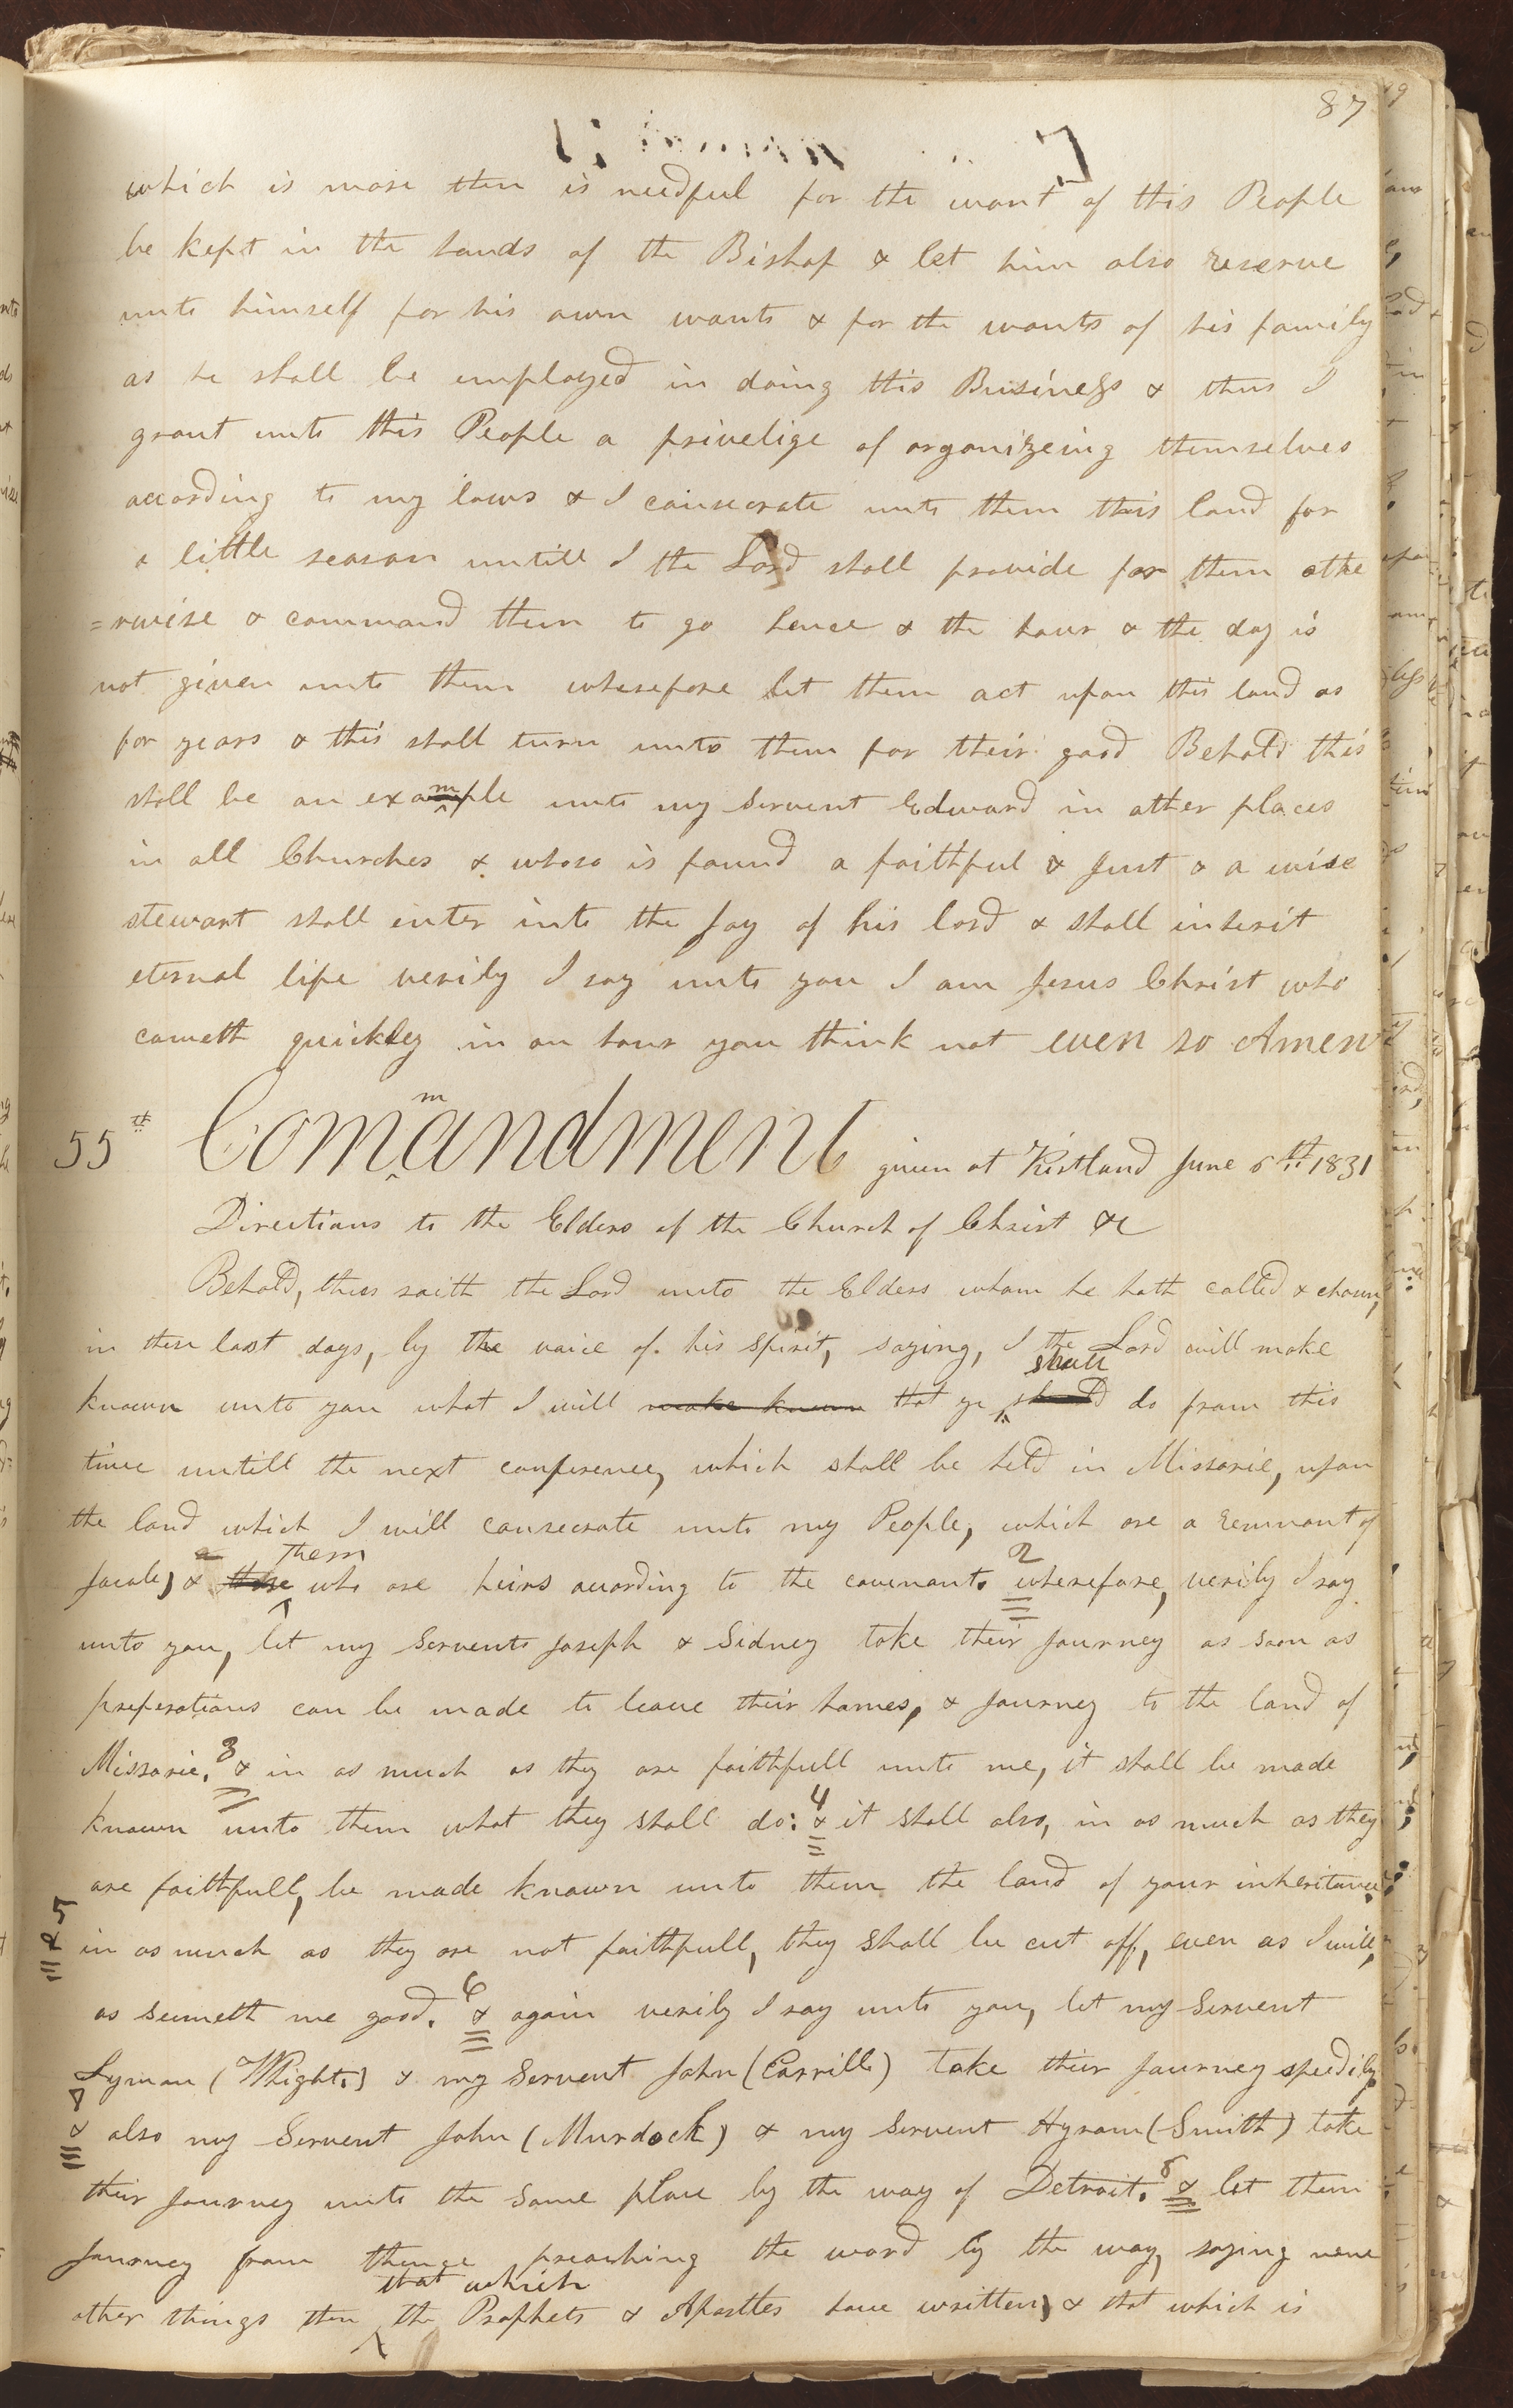 87
which is more then is needful for the want of this People
be kept in the hands of the Bishop & let him also reserve
unto himself for his own wants & for the wants of his family
as he shall be employed in doing this Business & thus I
grant unto this People a privelige of organizeing themselves
according to my laws & I consecrate unto them this land for
a little season untill I the Lord shall provide for them othe
=rwise & command them to go hence & the hour & the day is
not given unto them wherefore let them act upon this land as
for years & this shall turn unto them for their good Behold this
shall be an example unto my servent Edward in other places
in all Churches & whoso is found a faithful & Just & a wise
stewart shall enter into the Joy of his lord & shall inherit
eternal life verily I say unto you I am Jesus Christ who
cometh quickly in an hour you think not even so Amen
m
55th Comandment given at Kirtland June 6th 1831
Directions to the Elders of the Church of Christ &c
Behold, thus saith the Lord unto the Elders whom he hath called & chosen,
in these last days, by the voice of his spirit, saying, I the Lord will make
shall
known unto you what I will make known that ye should do from this
time untill the next conference, which shall be held in Missorie, upon
the land which I will consecrate unto my People, which are a remnant of
Them 2
Jacob, & those who are heirs according to the covenant. wherefore, verily I say
unto you, let my Servents Joseph & Sidney take their Journey as soon as
preperations can be made to leave their homes, & Journey to the land of
Missorie. 3 & in as much as they are faithfull unto me, it shall be made
known unto them what they shall do: 4 & it shall also, in as much as they
are faithfull, be made known unto them the land of your inheritance.
& 5 in as much as they are not faithfull, they shall be cut off, even as I will,
as seemeth me good. 6 & again verily I say unto you, let my Servent
Lyman (Whight.) & my Servent John (Corrill) take their Journey speedily.
& 7 also my Servent John (Murdock) & my Servent Hyram (Smith) take
their Journey unto the same place by the way of Detroit. 8 & let them
Journey from thence preaching the word by the way, saying none
that which
other things then the Prophets & Apostles have written, & that which is